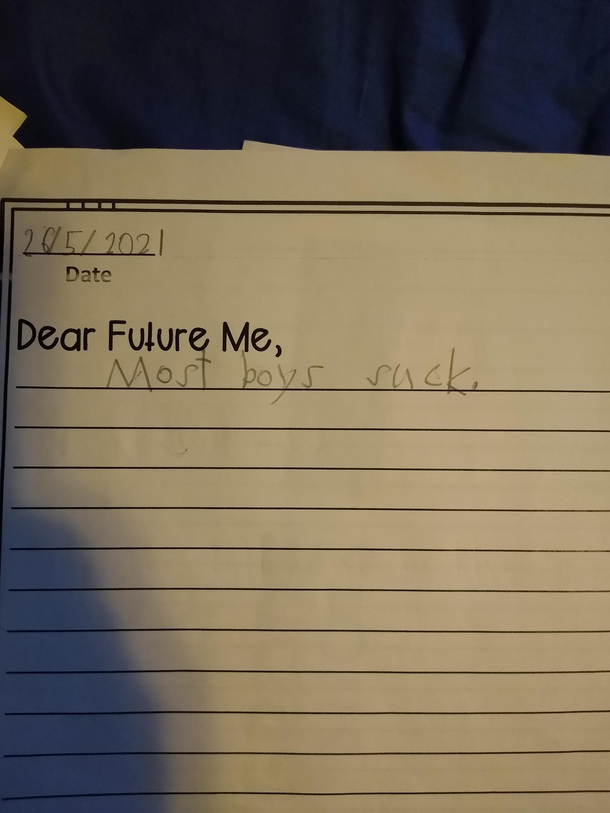 26/5/2021
Date
Dear Future Me,
Most boys suck.